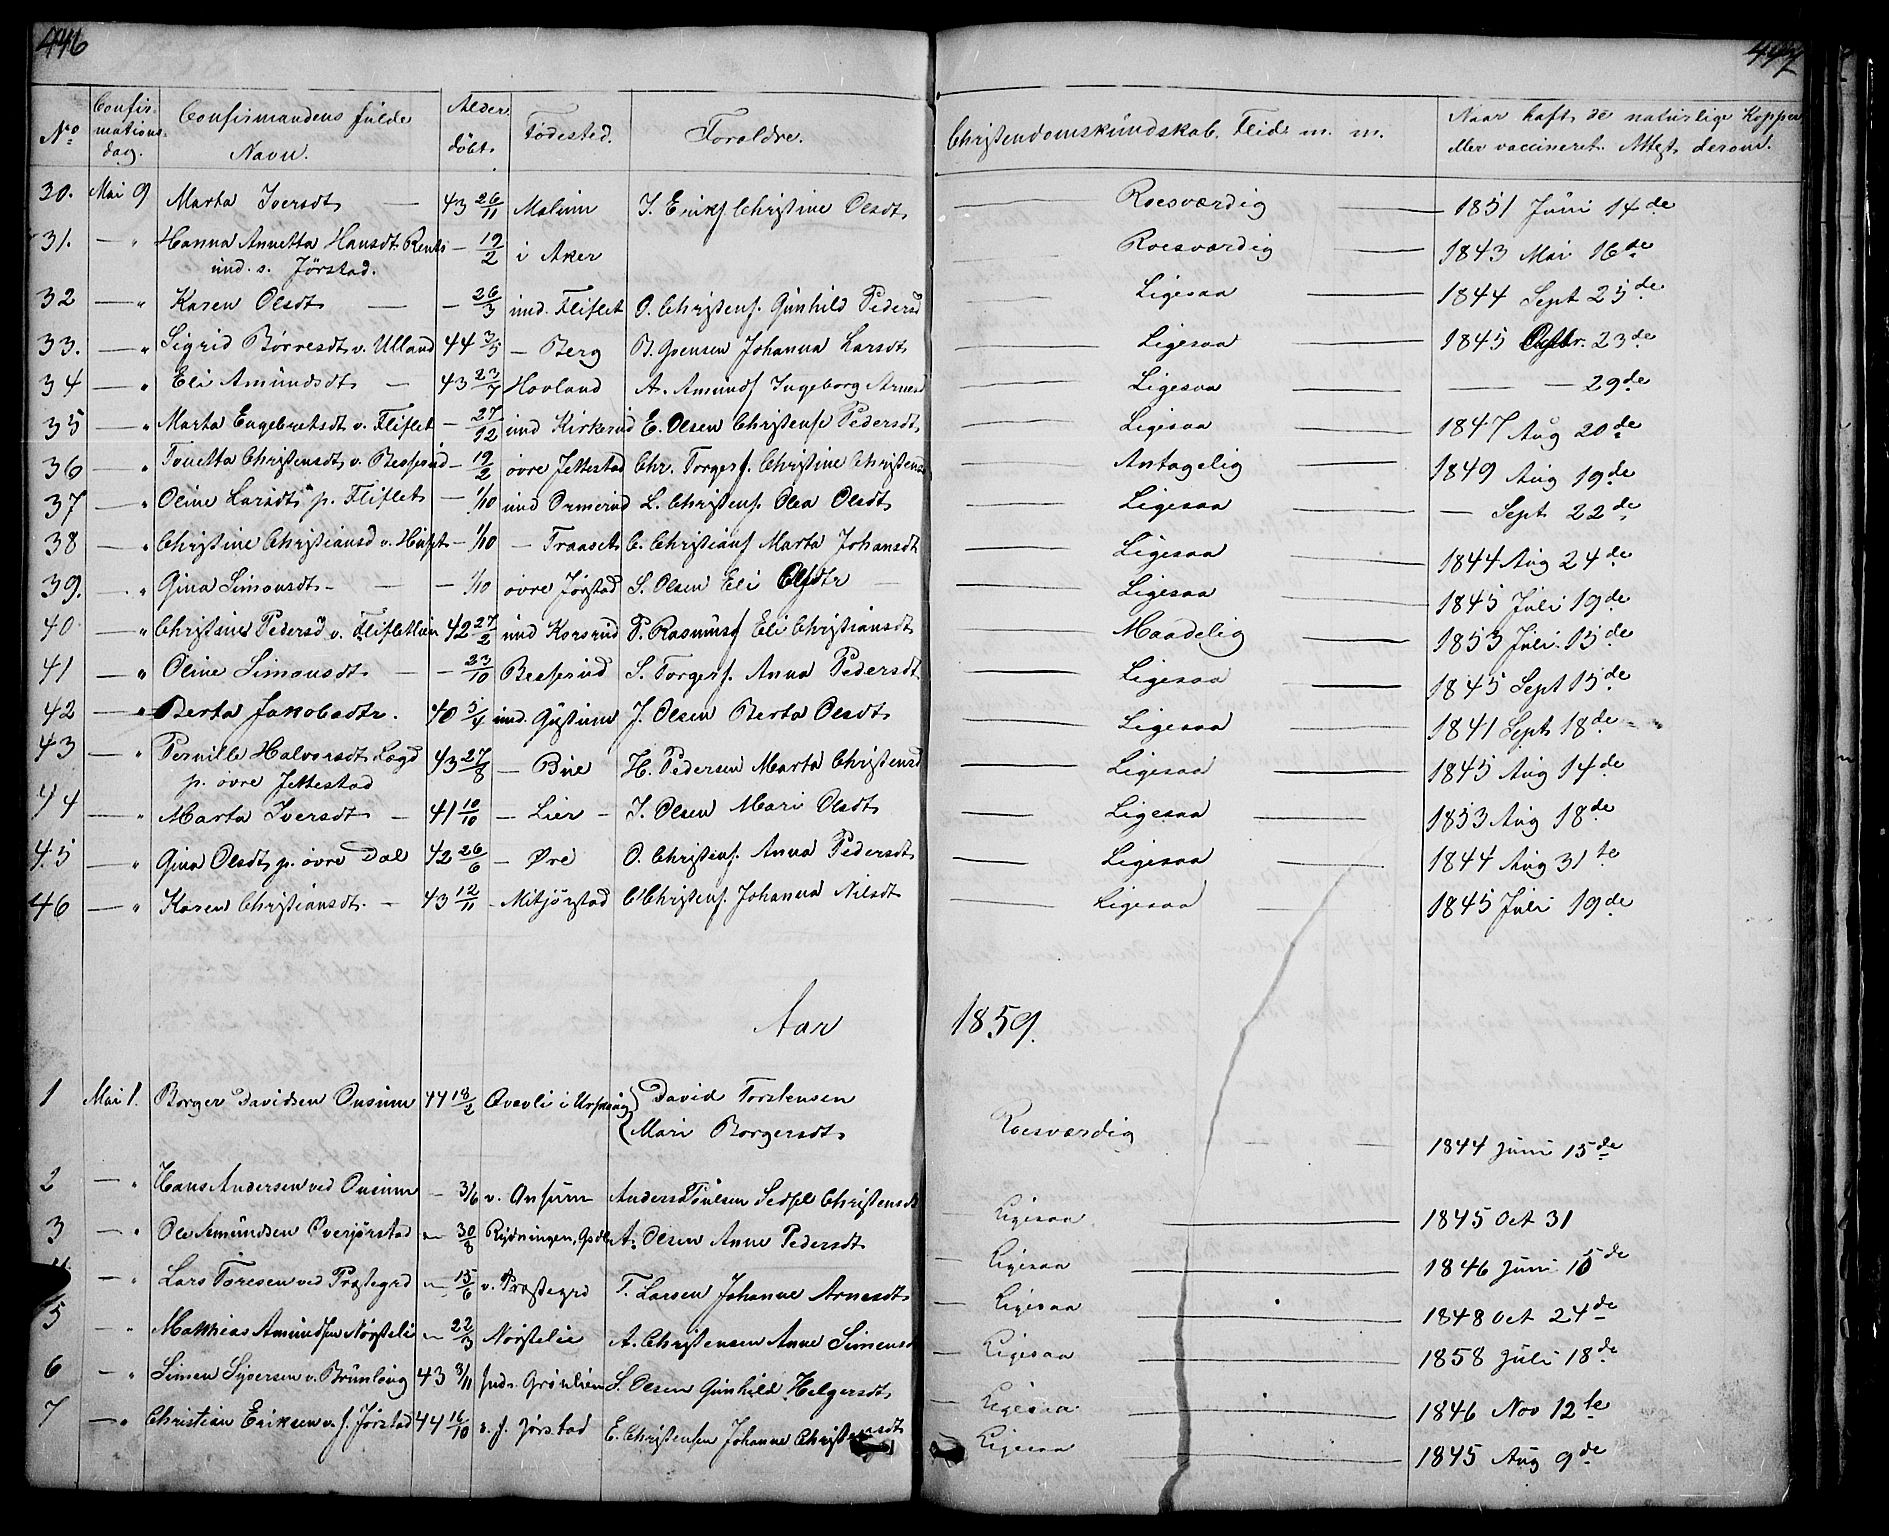 446
447
No Confirmations dag. Confirmandens fulde Navn. Alder döbt Födested. Forældre. Christendomskundskab. Flid m. m. Naar haft de naturlige Kopper eller vaccineret. Attest derom.
30. Mai 9 Marta Iversdt 43 26/11 Malum I. Eriks Christine Olsdt Roesværdig 1851 Juni 14de
31. — " Hanna Annetta Hansdt
ind. s. Jørstad. — 19/2 i Aker Roesværdig 1843 Mai 16de
32 — " Karen Olsdt — 26/3 ind. Fliflet O. Christens. Gunhild Pedersd Ligesaa 1844 Sept 25de
33. — " Sigrid Börresdt v. Ulland 44 3/5 — Berg B. Johanna Larsdt Ligesaa 1845 23de
34 — " Eli Amundsdt — 43 23/7 Hovland A. Amunds Ingeborg Arnesd Ligesaa — — 29de
35 — " Marta Engebretsdt v. Fliflet — 27/12 ind Kirkerud E. Olsen Christense Pedersdt Ligesaa 1847 Aug 20de
36 — " Tonetta Christensdt v. Besserud — 19/2 övre Jettestad Chr. Torgers. Christine Christensd Antagelig 1849 Aug 19de
37 — " Oline Larsdt p. Fliflet — 1/10 ind Ormerud L. Christens Olea Olsdt Ligesaa — Sept 22de
38 — " Christine Christiansd v. — 1/10 — Traaset C. Christians Marta Johansdt Ligesaa 1844 Aug 24de
39. — " Gina Simonsdt — — 1/10 övre Jørstad S. Olsen Eli Olsdtr Ligesaa 1845 Juli 19de
40 — " Christine Pedersd v. Flifleteien 42 27/2 ind Korsrud P. Rasmuss Eli Christiansdt Maadelig 1853 Juli 15de
41 — " Oline Simonsdt — — 23/10 Besserud S. Torgers. Anna Pedersdt Ligesaa 1845 Sept 15de
42 — " Berta Jakobsdtr. 40 5/4 ind. J. Olsen Berta Olsdt Ligesaa 1841 Sept 18de
43 — " Pernille Halvorsdt Lægd
p. övre Jettestad 43 27/8 — Bue H. Pedersen Marta Christensd Ligesaa 1845 Aug 14de
44 — " Marta Iversdt — 41 10/10 — Lier — I. Olsen Mari Olsdt Ligesaa 1853 Aug 18de
45 — " Gina Olsdt p. övre Dal 42 26/6 — Øre O. Christens. Anna Pedersdt Ligesaa 1844 Aug 31te
46 — " Karen Christiansdt. — 43 12/11 — Mitjørstad C Christens. Johanna Nilsdt Ligesaa 1845 Juli 19de
Aar 1859.
1 Mai 1. Borger Davidsen Onsum 44 18/2 Qvevli i David Torstensen
Mari Borgersdt Roesværdig 1844 Juni 15de
2 — " Hans Andersen ved Onsum — 3/6 v. Onsum Anders Sedsel Christensdt Ligesaa 1845 Oct 31
3 — " Ole Amundsen Överjørstad — 30/8 Rydningen, A. Olsen Anne Pedersdt Ligesaa 1846 Juni de
4 — " Lars Toresen ved Præstegrd — 15/6 v. Præstegrd T. Larsen Johanne Arnesdt Ligesaa 1848 Oct 24de
5 — " Matthias Amundsen Nørsteli — 22/3 Nørstelie A. Christensen Anne Simensd Ligesaa 1858 Juli 18de
6 — " Simen Syversen v. 43 3/11 Inds. Grönlien S. Olsen Gunhild Helgersdt Ligesaa 1846 Nov 12te
7 — " Christian Eriksen v. s. Jørstad 44 16/10 v. s. Jørstad E. Christensen Johanne Christensdt Ligesaa 1845 Aug 9de